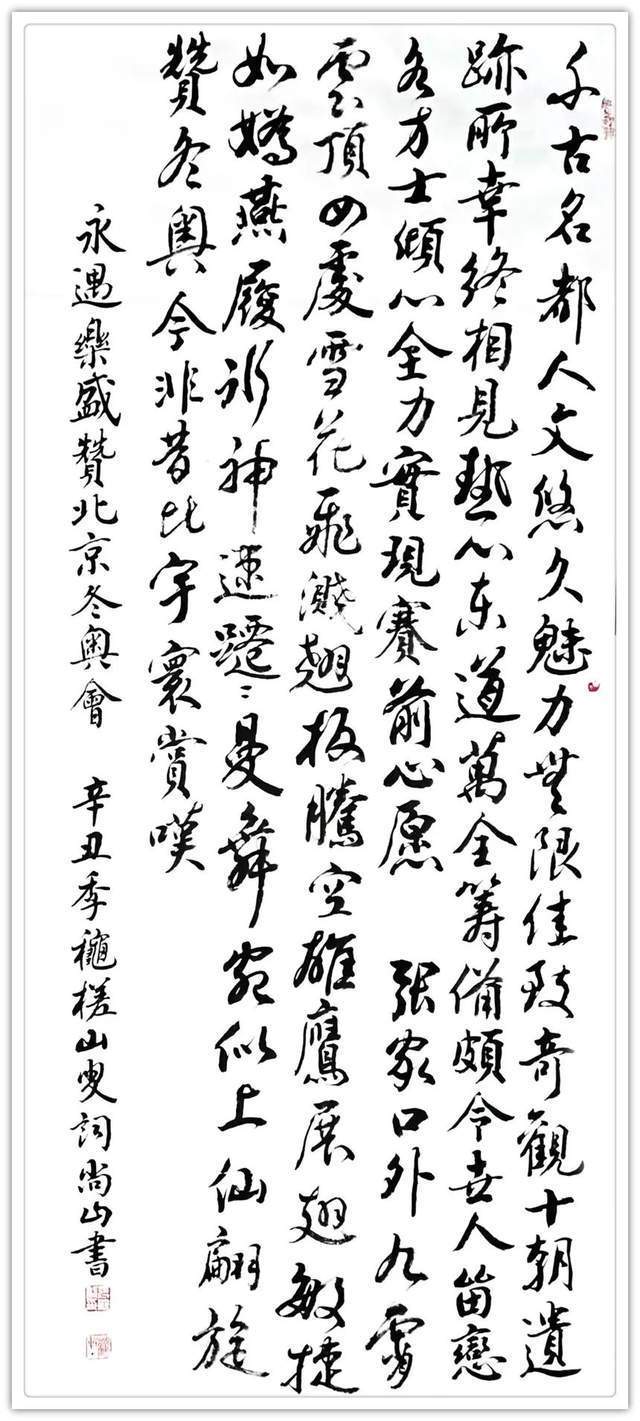 千古名都人文悠久魅力無限佳致奇觀十朝遺
跡所幸終相見熱心東道萬全籌備頗令世人留戀
各方士傾心全力實現賽前心愿 張家口外九霄
雲頂四處雪花飛濺翹板騰空雄鷹展翅敏捷
如嬌燕履冰神速蹮〻曼舞宛似上仙翩旋
贊冬奧今非昔比宇寰賞嘆
永遇樂盛贊北京冬奧會 辛丑季龝槎山叟詞尚山書